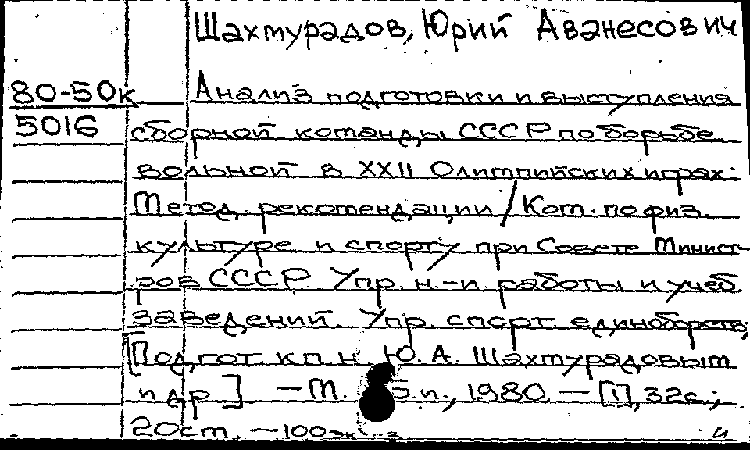 Шахмурадов, Юрий Аванесович
80-50к Анализ подготовки и выступления
5016 сборной команды СССР по борьбе
вольной в XXII Олимпийских играх:
Метод. рекомендации / Ком. по физ.
культуре и спорту при Совете Минист-
ров СССР. Упр. н.-и. работы и учеб.
заведений. Упр. спорт. единоборств;
[Подгот. к п. н. Ю. А. Шахмурадовым
и др.] — М. Б.и., 1980 — [1], 32 с.;
20 см. — 100